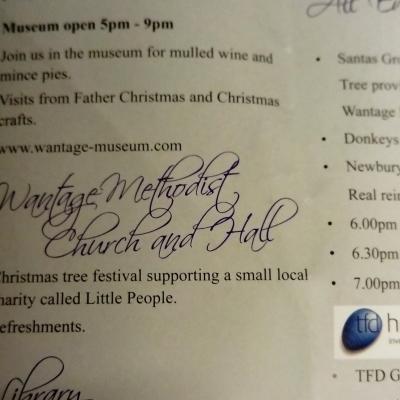 Museum open 5pm - 9pm
Join us in the museum for mulled wine and
mince pies.
Visits from Father Christmas and Christmas
crafts.
www.wantage-museum.com
Wantage Methodist
Church and Hall
Christmas tree festival supporting a small local
charity called Little People.
Refreshments.
Library
All
• Santas
Tree
Wantage
• Donkeys
• Newbury
Real
• 6.00pm
• 6.30pm
• 7.00pm
tfd
• TFD G